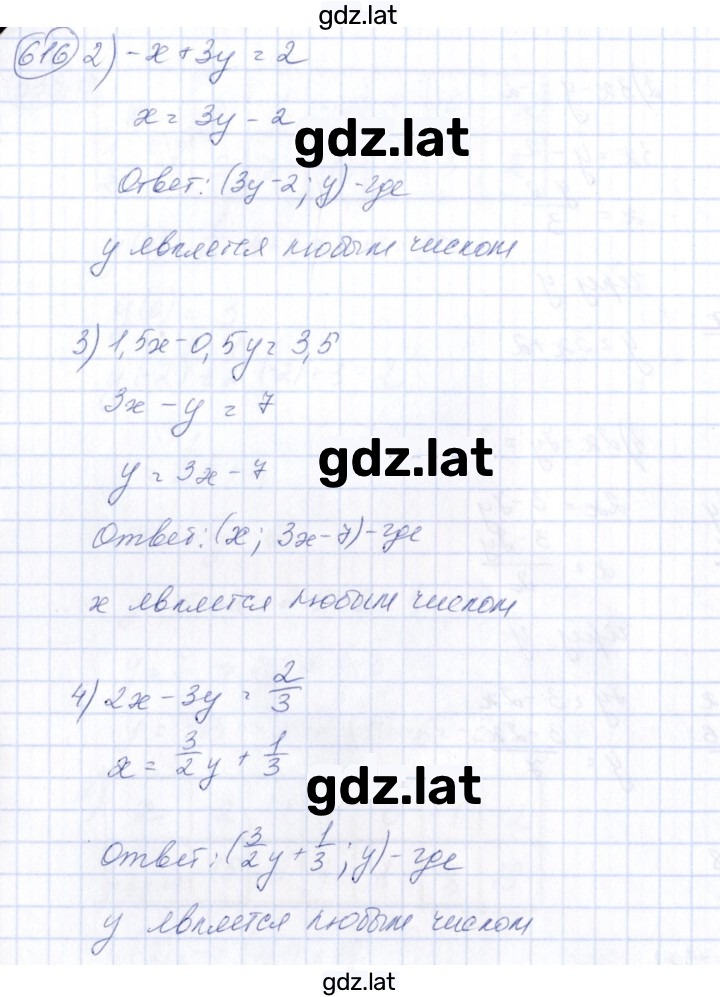 gdz.lat
616 2) -x + 3y = 2
x = 3y - 2
gdz.lat
Ответ: (3y-2; y) - где
y является любым числом
3) 1,5x - 0,5y = 3,5
3x - y = 7
gdz.lat
y = 3x - 7
Ответ: (x; 3x-7) - где
x является любым числом
4) 2x - 3y = 2/3
x = 3/2 y + 1/3
gdz.lat
Ответ: (3/2 y + 1/3; y) - где
y является любым числом
gdz.lat